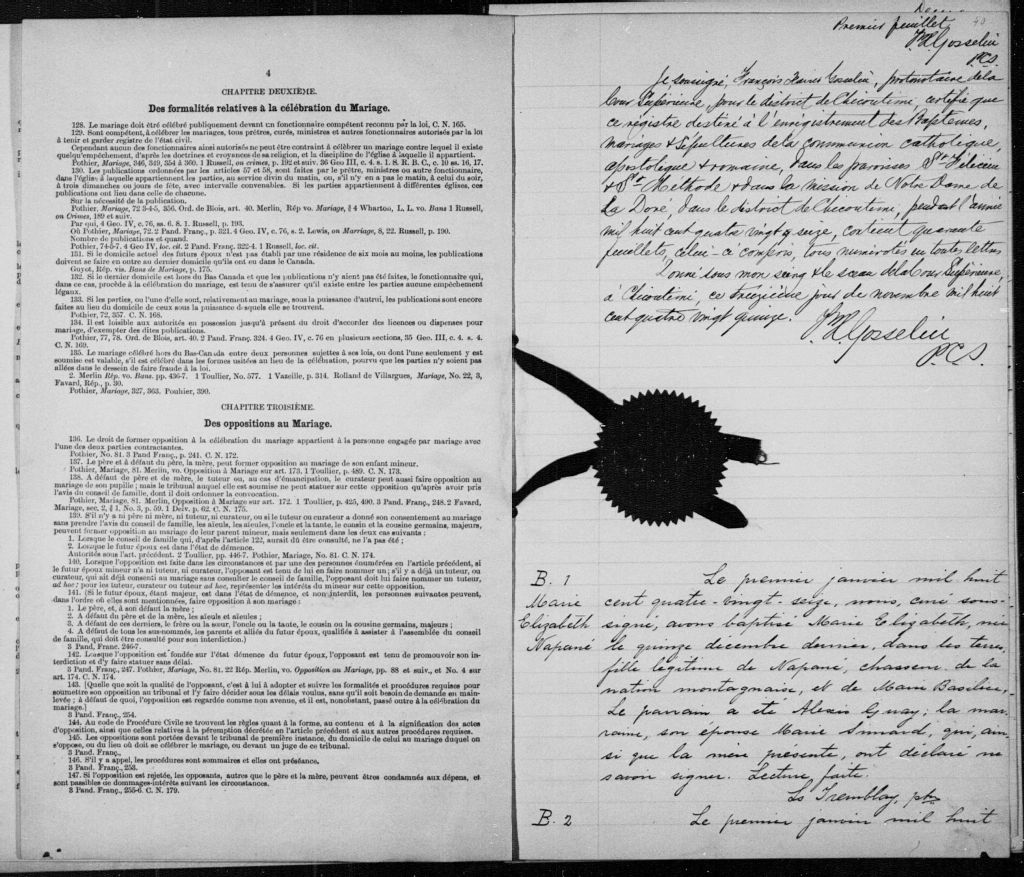 4
CHAPITRE DEUXIÈME.
Des formalités relatives à la célébration du Mariage.
128. Le mariage doit être célébré publiquement devant un fonctionnaire compétent reconnu par la loi, C. N. 165.
129. Sont compétent, à célébrer les mariages, tous prêtres, curés, ministres et autres fonctionnaires autorisés par la loi
à tenir et garder registre de l'état civil.
Cependant aucun des fonctionnaires ainsi autorisés ne peut être contraint à célébrer un mariage contre lequel il existe
quelqu'empêchement, d'après les doctrines et croyances de sa religion, et la discipline de l'église à laquelle il appartient.
Pothier, Mariage, 346, 349, 354 à 360. 1 Russell, on crimes, p. 192 et suiv. 36 Geo III, c. 4. s. 1. 8. R. B. C., c. 10 ss. 16, 17.
130. Les publications ordonnées par les articles 57 et 58, sont faites par le prêtre, ministre ou autre fonctionnaire,
dans l'église à laquelle appartiennent les parties, au service divin du matin, ou, s'il n'y en a pas le matin, à celui du soir,
à trois dimanches ou jours de fête, avec intervalle convenables. Si les parties appartiennent à différentes églises, ces
publications ont lieu dans celle de chacune.
Sur la nécessité de la publication.
Pothier, Mariage, 72 3-4-5, 356. Ord. de Blois, art. 40. Merlin, Rép vo. Mariage, § 4 Wharton, L. L. vo. Bans 1 Russell,
on Crimes, 189 et suiv.
Par qui, 4 Geo. IV, c. 76, s. 6. 8. 1. Russell, p. 193.
Où Pothier, Mariage, 72. 2 Pand. Franç., p. 321. 4 Geo. IV, c. 76, s. 2. Lewis, on Marriage, 8, 22. Russell, p. 190.
Nombre de publications et quand.
Pothier, 74-5-7. 4 Geo IV, loc. cit. 2 Pand. Franç. 322-4. 1 Russell, loc. cit.
131. Si le domicile actuel des futurs époux n'est pas établi par une résidence de six mois au moins, les publications
doivent se faire en outre au dernier domicile qu'ils ont eu dans le Canada.
Guyot, Rép. vis. Bans de Mariage, p. 175.
132. Si le dernier domicile est hors du Bas Canada et que les publications n'y aient pas été faites, le fonctionnaire qui,
dans ce cas, procède à la célébration du mariage, est tenu de s'assurer qu'il existe entre les parties aucune empêchement
légaux.
133. Si les parties, ou l'une d'elle sont, relativement au mariage, sous la puissance d'autrui, les publications sont encore
faites au lieu du domicile de ceux sous la puissance desquels elle se trouvent.
Pothier, 72, 357. C. N. 168.
134. Il est loisible aux autorités en possession jusqu'à présent du droit d'accorder des licences ou dispenses pour
mariage, d'exempter des dites publications.
Pothier, 77, 78. Ord. de Blois, art. 40. 2 Pand Franç. 324. 4 Geo. IV, c. 76 en plusieurs sections, 35 Geo. III, c. 4. s. 4.
C. N. 169.
135. Le mariage célébré hors du Bas-Canada entre deux personnes sujettes à ses lois, ou dont l'une seulement y est
soumise est valable, s'il est célébré dans les formes usitées au lieu de la célébration, pourvu que les parties n'y soient pas
allées dans le dessein de faire fraude à la loi.
2. Merlin Rép. vo. Bans. pp. 436-7. 1 Toullier, No. 577. 1 Vazeille, p. 314. Rolland de Villargues, Mariage, No. 22, 3,
Favard, Rép., p. 30.
Pothier, Mariage, 327, 363. Pouhier, 390.
CHAPITRE TROISIÈME.
Des oppositions au Mariage.
136. Le droit de former opposition à la célébration du mariage appartient à la personne engagée par mariage avec
l'une des deux parties contractantes.
Pothier, No. 81. 3 Pand Franç., p. 241. C. N. 172.
137. Le père et à défaut du père, la mère, peut former opposition au mariage de son enfant mineur.
Pothier, Mariage, 81. Merlin, vo. Opposition à Mariage sur art. 173, 1 Toullier, p. 489. C. N. 173.
138. A défaut de père et de mère, le tuteur ou, au cas d'émancipation, le curateur peut aussi faire opposition au
mariage de son pupille; mais le tribunal auquel elle est soumise ne peut statuer sur cette opposition qu'après avoir pris
l'avis du conseil de famille, dont il doit ordonner la convocation.
Pothier, Mariage, 81. Merlin, Opposition à Mariage sur art. 172. 1 Toullier, p. 425, 490. 3 Pand. Franç., 248. 2 Favard,
Mariage, sec. 2, § 1. No. 3, p. 59. 1 Delv. p. 62. C. N. 175.
139. S'il n'y a ni père ni mère, ni tuteur, ni curateur, ou si le tuteur ou curateur a donné son consentement au mariage
sans prendre l'avis du conseil de famille, les aïeuls, les aïeules, l'oncle et la tante, le cousin et la cousine germains, majeurs,
peuvent former opposition au mariage de leur parent mineur, mais seulement dans les deux cas suivants :
1. Lorsque le conseil de famille qui, d'après l'article 122, aurait dû être consulté, ne l'a pas été ;
2. Lorsque le futur époux est dans l'état de démence.
Autorités sous l'art. précédent. 2 Toullier, pp. 446-7. Pothier, Mariage, No. 81. C. N. 174.
140. Lorsque l'opposition est faite dans les circonstances et par une des personnes énumérées en l'article précédent, si
le futur époux mineur n'a ni tuteur, ni curateur, l'opposant est tenu de lui en faire nommer un ; s'il y a déjà un tuteur, ou
curateur, qui ait déjà consenti au mariage sans consulter le conseil de famille, l'opposant doit lui faire nommer un tuteur,
ad hoc ; pour les tuteur, curateur ou tuteur ad hoc, représenter les intérêts du mineur sur cette opposition.
141. (Si le futur époux, étant majeur, est dans l'état de démence, et non interdit, les personnes suivantes peuvent,
dans l'ordre où elles sont mentionnées, faire opposition à son mariage :
1. Le père, et, à son défaut la mère ;
2. A défaut du père et de la mère, les aïeuls et aïeules ;
3. A défaut de ces derniers, le frère ou la sœur, l'oncle ou la tante, le cousin ou la cousine germains, majeurs ;
4. A défaut de tous les sus-nommés, les parents et alliés du futur époux, qualifiés à assister à l'assemblée du conseil
de famille, qui doit être consulté pour son interdiction.)
3 Pand, Franç. 246-7.
142. Lorsque l'opposition est fondée sur l'état démence du futur époux, l'opposant est tenu de promouvoir son inter-
diction et d'y faire statuer sans délai.
3 Pand. Franç., 247. Pothier, Mariage, No. 81. 22 Rép. Merlin, vo. Opposition au Mariage, pp. 88 et suiv., et No. 4 sur
art. 174. C. N. 174.
143. [Quelle que soit la qualité de l'opposant, c'est à lui à adopter et suivre les formalités et procédures requises pour
soumettre son opposition au tribunal et l'y faire décider sous les délais voulus, sans qu'il soit besoin de demande en main-
levée ; à défaut de quoi, l'opposition est regardée comme non avenue, et il est, nonobstant, passé outre à la célébration du
mariage.]
3 Pand. Franç., 254.
144. Au code de Procédure Civile se trouvent les règles quant à la forme, au contenu et à la signification des actes
d'opposition, ainsi que celles relatives à la péremption décrétée en l'article précédent et aux autres procédures requises.
145. Les oppositions sont portées devant le tribunal de première instance, du domicile de celui au mariage duquel on
s'oppose, ou du lieu où doit se célébrer le mariage, ou devant un juge de ce tribunal.
3 Pand. Franç.,
146. S'il y a appel, les procédures sont sommaires et elles ont préséance.
3 Pand. Franç., 253.
147. Si l'opposition est rejetée, les opposants, autres que le père et la mère, peuvent êtres condamnés aux dépens, et
sont passibles de dommages-intérêts suivant les circonstances.
3 Pand. Franç., 255-6. C. N. 179.
40
Premier feuillet
Gosselin
P.C.S.
Je, soussigné, François Gosselin, protonotaire de la
Cour Supérieure, pour le district de Chicoutimi, certifie que
ce régistre destiné à l'enregistrement des Baptêmes,
mariages & sépultures de la communion catholique,
apostolique & romaine, dans les paroisses St Félicien
& St Méthode & dans la mission de Notre Dame de
La Doré, dans le district de Chicoutimi, pendant l'année
mil huit cent quatre vingt seize, contient quarante
feuillets, celui-ci compris, tous numérotés en toutes lettres
Donné sous mon seing & le sceau de la Cour Supérieure,
à Chicoutimi, ce treizième jour de novembre mil huit
cent quatre vingt quinze.
Gosselin
P.C.S.
B. 1
Marie
Elizabeth
Napané
Le premier janvier mil huit
cent quatre-vingt-seize, nous, curé sous-
signé, avons baptisé Marie Elizabeth, née
le quinze décembre dernier, dans les terres,
fille légitime de Napané, chasseur de la
nation montagnaise, et de Marie Basilise.
Le parrain a été Alexis Guay ; la mar-
raine, son épouse Marie Simard, qui, ain-
si que la mère présente, ont déclaré ne
savoir signer. Lecture faite.
Ls Tremblay, ptre
B. 2
Le premier janvier mil huit